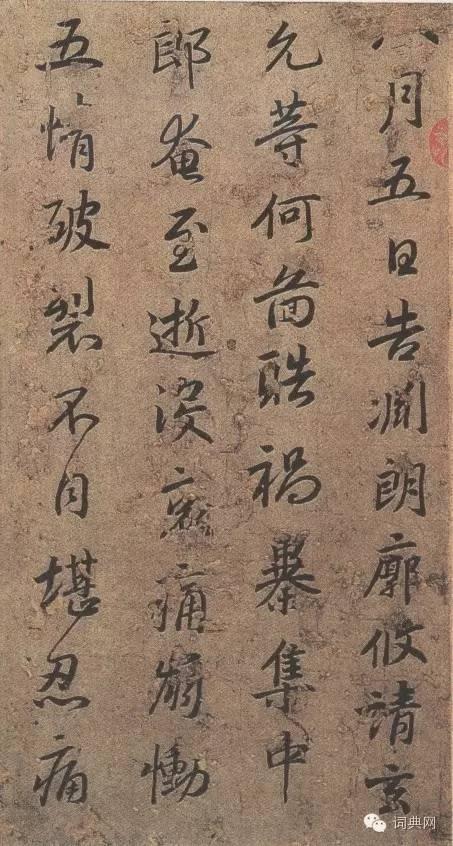 八月五日告淵朗廓攸靖玄
允等何圖酷禍暴集中
郎奄至逝没哀痛崩慟
五情破裂不自堪忍痛
词典网